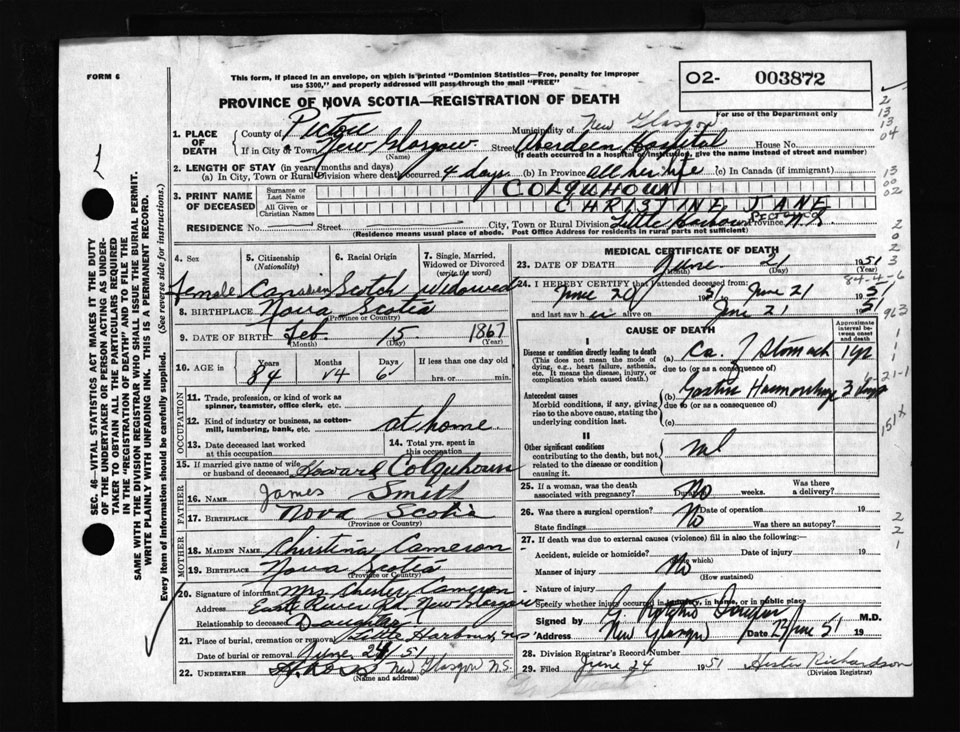 FORM 6
This form, if placed in an envelope, on which is printed "Dominion Statistics—Free, penalty for improper
use $300," and properly addressed will pass through the mail "FREE"
O2- 003872
For use of the Department only
PROVINCE OF NOVA SCOTIA—REGISTRATION OF DEATH
1. PLACE OF DEATH
County of Pictou Municipality of New Glasgow
If in City or Town New Glasgow Street Aberdeen Hospital House No.
(Name) (If death occurred in a hospital or institution, give the name instead of street and number)
2. LENGTH OF STAY (in years, months and days)
(a) In City, Town or Rural Division where death occurred 4 days (b) In Province all her life (c) In Canada (if immigrant)
3. PRINT NAME OF DECEASED
Surname or Last Name COLQUHOUN
All Given or Christian Names CHRISTINE JANE
RESIDENCE No. Street City, Town or Rural Division Little Harbour Province N.S.
(Residence means usual place of abode. Post Office Address for residents in rural parts not sufficient)
4. Sex female
5. Citizenship (Nationality) Canadian
6. Racial Origin Scotch
7. Single, Married, Widowed or Divorced (write the word) Widowed
8. BIRTHPLACE Nova Scotia
(Province or Country)
9. DATE OF BIRTH Feb. 15 1867
(Month) (Day) (Year)
10. AGE Years 84 Months 4 Days 6 If less than one day old
hrs. or min.
OCCUPATION
11. Trade, profession, or kind of work as
spinner, teamster, office clerk, etc.
12. Kind of industry or business, as cotton-
mill, lumbering, bank, etc. at home
13. Date deceased last worked
at this occupation
14. Total yrs. spent in
this occupation
15. If married give name of wife
or husband of deceased Howard Colquhoun
FATHER
16. NAME James Smith
17. BIRTHPLACE Nova Scotia
(Province or Country)
MOTHER
18. MAIDEN NAME Christina Cameron
19. BIRTHPLACE Nova Scotia
(Province or Country)
20. Signature of informant Mrs Chester Cameron
Address East River Rd. New Glasgow
Relationship to deceased Daughter
21. Place of burial, cremation or removal Little Harbour NS
Date of burial or removal June 24 51
22. UNDERTAKER New Glasgow N.S.
(Name and address)
MEDICAL CERTIFICATE OF DEATH
23. DATE OF DEATH June 21 1951
(Month) (Day) (Year)
24. I HEREBY CERTIFY that I attended deceased from
June 20 1951 to June 21 1951
and last saw her alive on June 21 1951
CAUSE OF DEATH
Approximate interval between onset and death
I
Disease or condition directly leading to death
(This does not mean the mode of dying, e.g., heart failure, asthenia, etc. It means the disease, injury, or complication which caused death.)
(a) Ca. of Stomach 1 yr
due to (or as a consequence of)
Antecedent causes
Morbid conditions, if any, giving rise to the above cause, stating the underlying condition last.
(b) Gastric Hemorrhage 3 days
due to (or as a consequence of)
(c)
II
Other significant conditions
contributing to the death, but not related to the disease or condition causing it. nil
25. If a woman, was the death
associated with pregnancy? No Duration weeks. Was there
a delivery?
26. Was there a surgical operation? No Date of operation 19
State findings Was there an autopsy?
27. If death was due to external causes (violence) fill in also the following:
Accident, suicide or homicide? Date of injury 19
(State which)
Manner of injury No
(How sustained)
Nature of injury
Specify whether injury occurred in industry, in home, or in public place
Signed by M.D.
Address New Glasgow Date 23 June 51 19
28. Division Registrar's Record Number
29. Filed June 24 1951 Hester Richardson
(Division Registrar)
SEC. 46—VITAL STATISTICS ACT MAKES IT THE DUTY
OF THE UNDERTAKER OR PERSON ACTING AS UNDER-
TAKER TO OBTAIN ALL THE PARTICULARS REQUIRED
IN THE "REGISTRATION OF DEATH" AND TO FILE THE
SAME WITH THE DIVISION REGISTRAR WHO SHALL ISSUE THE BURIAL PERMIT.
WRITE PLAINLY WITH UNFADING INK. THIS IS A PERMANENT RECORD.
Every item of information should be carefully supplied. (See reverse side for instructions.)